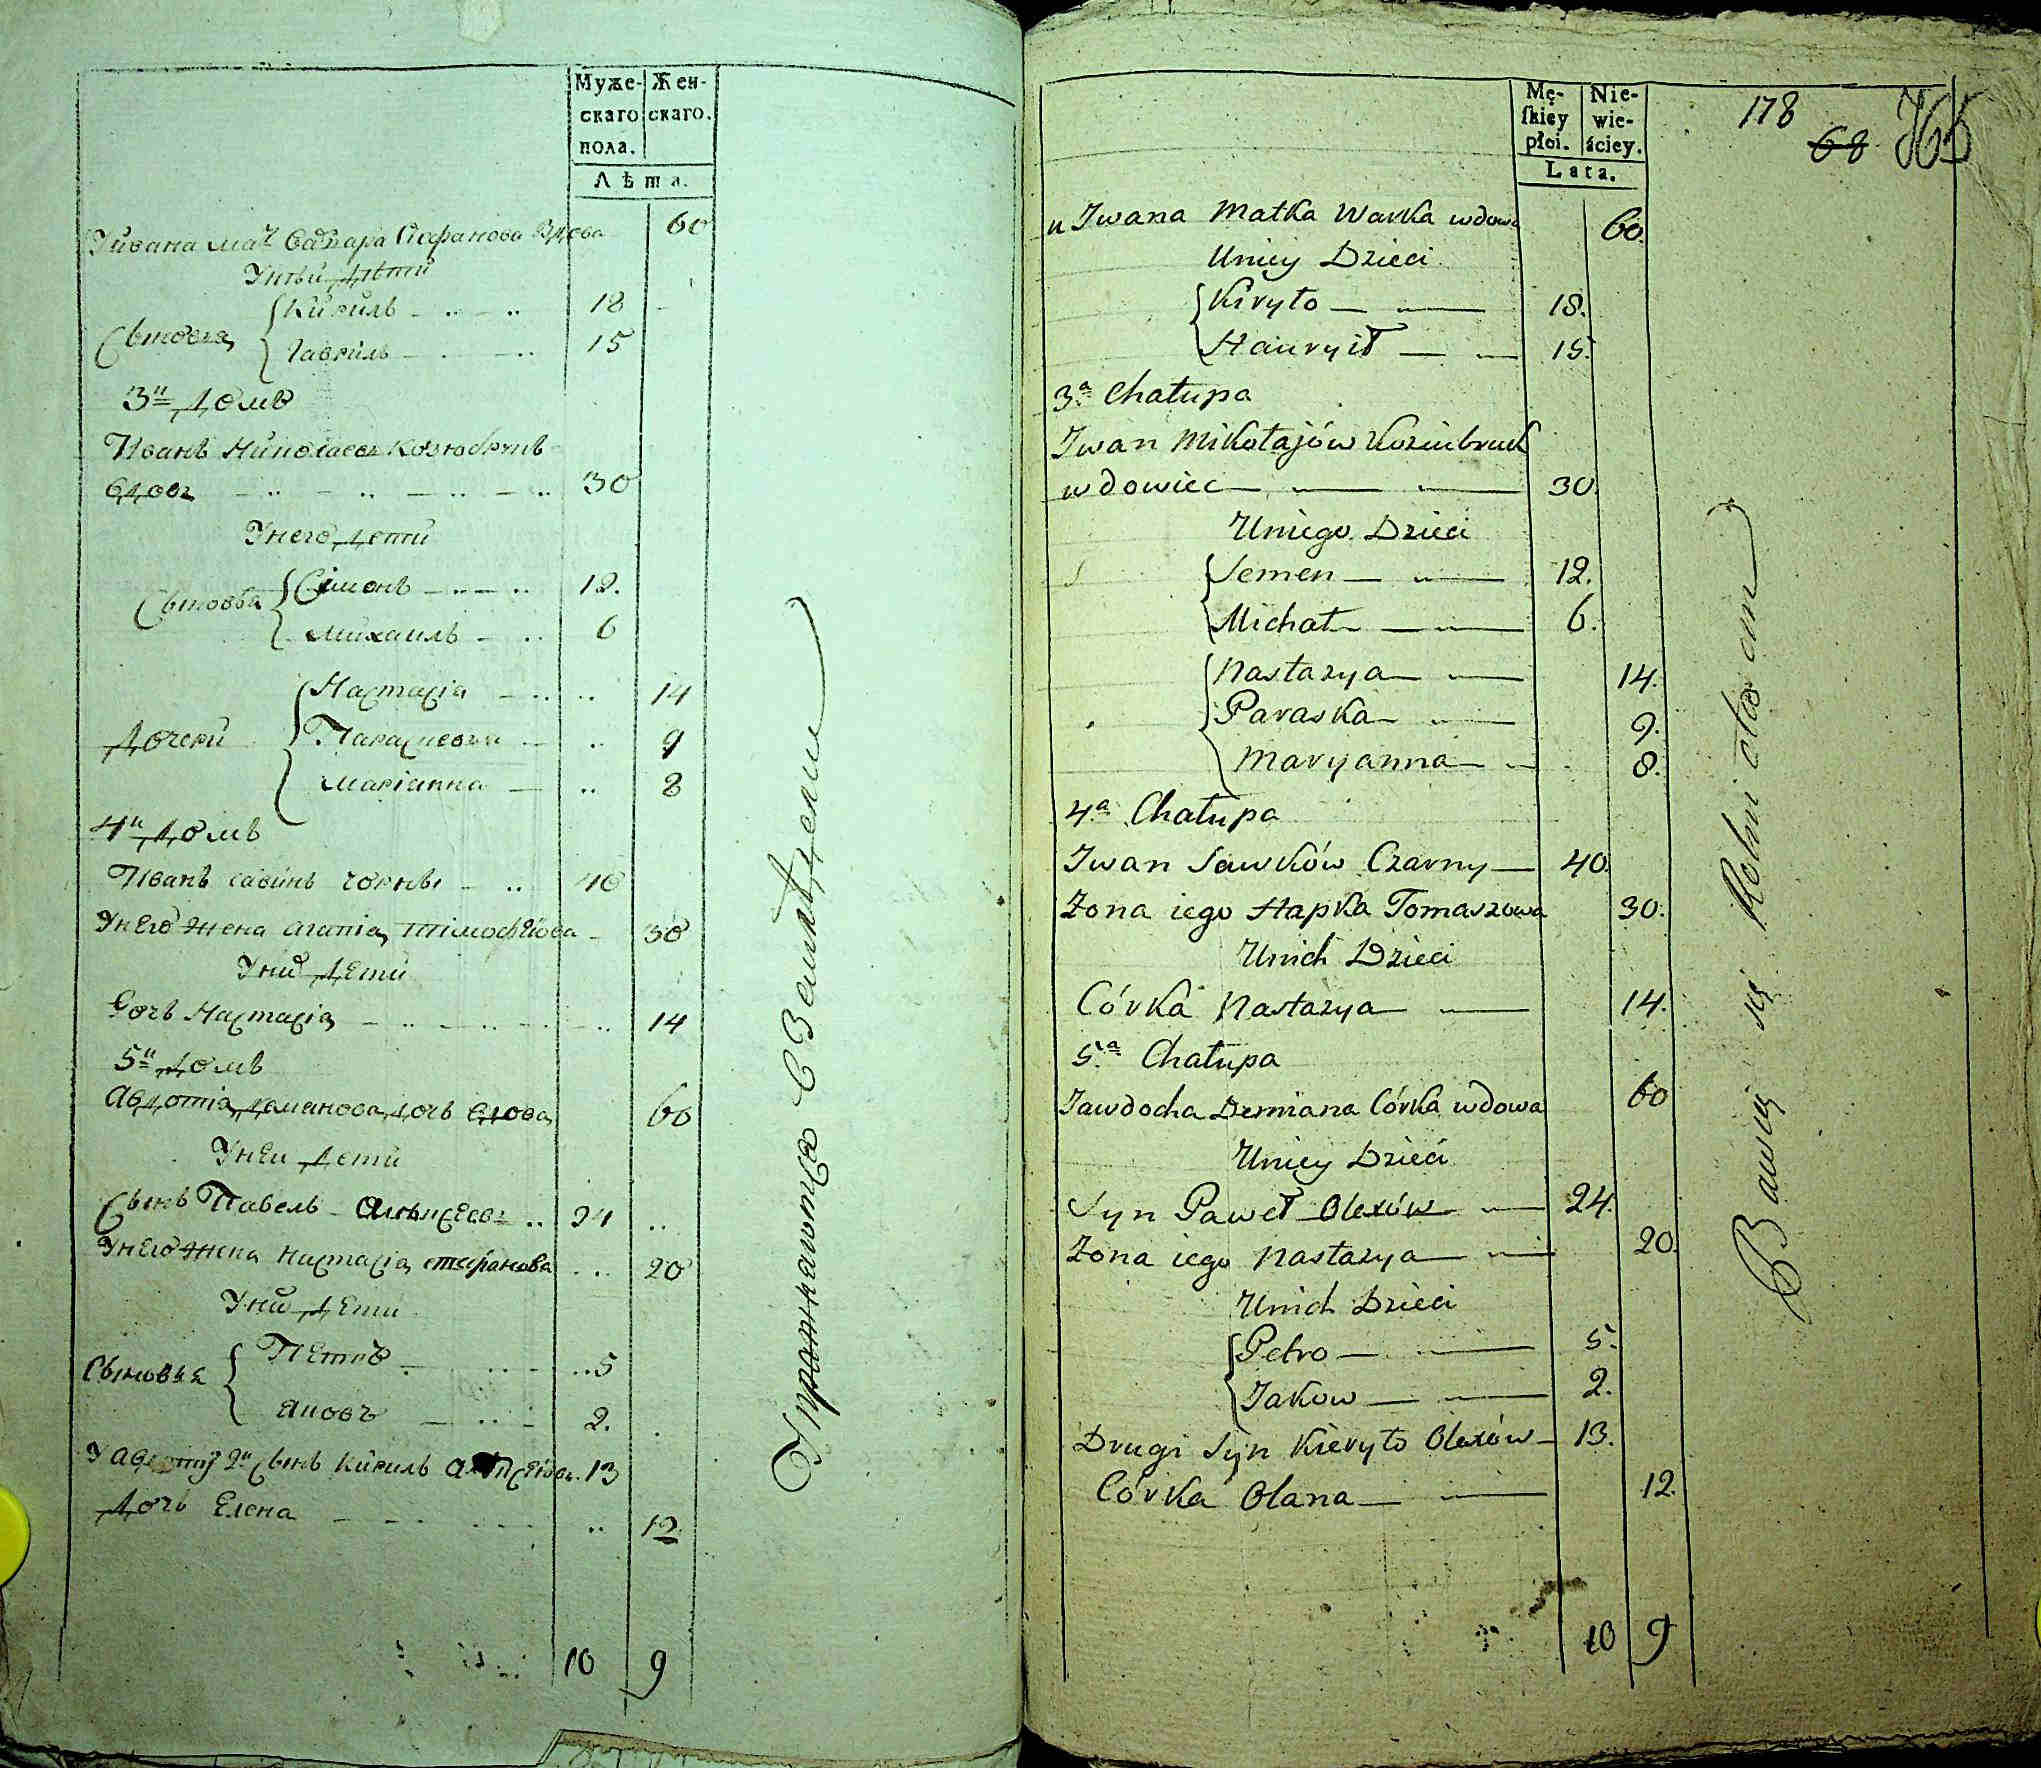 Муже-
скаго
пола.
Жен-
скаго.
Лѣта.
У Ивана мат Варвара Стефанова вдова 60
У ньй дѣти
Сыновя
Кирилъ 18
Гаврилъ 15
3й домъ
Иванъ Николаевъ Козюбрукъ
вдовъ 30
У него дети
Сыновья
Сімонъ 12.
Михаилъ 6
Дочери
Настасія 14
Параскевія 9
Маріанна 8
4й домъ
Иванъ Савинъ Чорны 40
У него жена Агапія Тімофеюва 30
У них дети
Дочъ Настасія 14
5й домъ
Авдотія Деманова дочъ вдова 60
У неи дети
Сынъ Павелъ Алексеевъ 24
У него жена Настасія Стефанова 20
У них дети
Сыновья
Петръ 5
Яковъ 2.
У Авдотіи 2й сынъ Кирилъ Алексеювъ 13
Дочъ Елена 12
10 9
Упражнаютца в Земледелии
Mę-
ſkiey
płci.
Nie-
wie-
ściey.
Lata.
178
68
u Jwana Matka Warka wdowa 60.
Unicy Dzieci
Kiryło 18.
Hauryił 15.
3a Chałupa
Jwan Mikołajów Koziubruk
wdowiec 30.
Uniego Dzieci
Semen 12.
Michał 6.
Nastazya 14.
Paraska 9.
Maryanna 8.
4a Chałupa
Jwan Sawków Czarny 40.
Żona iego Hapka Tomaszowa 30.
Unich Dzieci
Córka Nastazya 14.
5a Chałupa
Jawdocha Demiana Córka wdowa 60
Unicy Dzieci
Syn Paweł Olexów 24.
Żona iego Nastazya 20.
Unich Dzieci
Petro 5.
Jakow 2.
Drugi Syn Kieryło Olexów 13.
Córka Olana 12.
10 9
Bawią się Rolnictwem